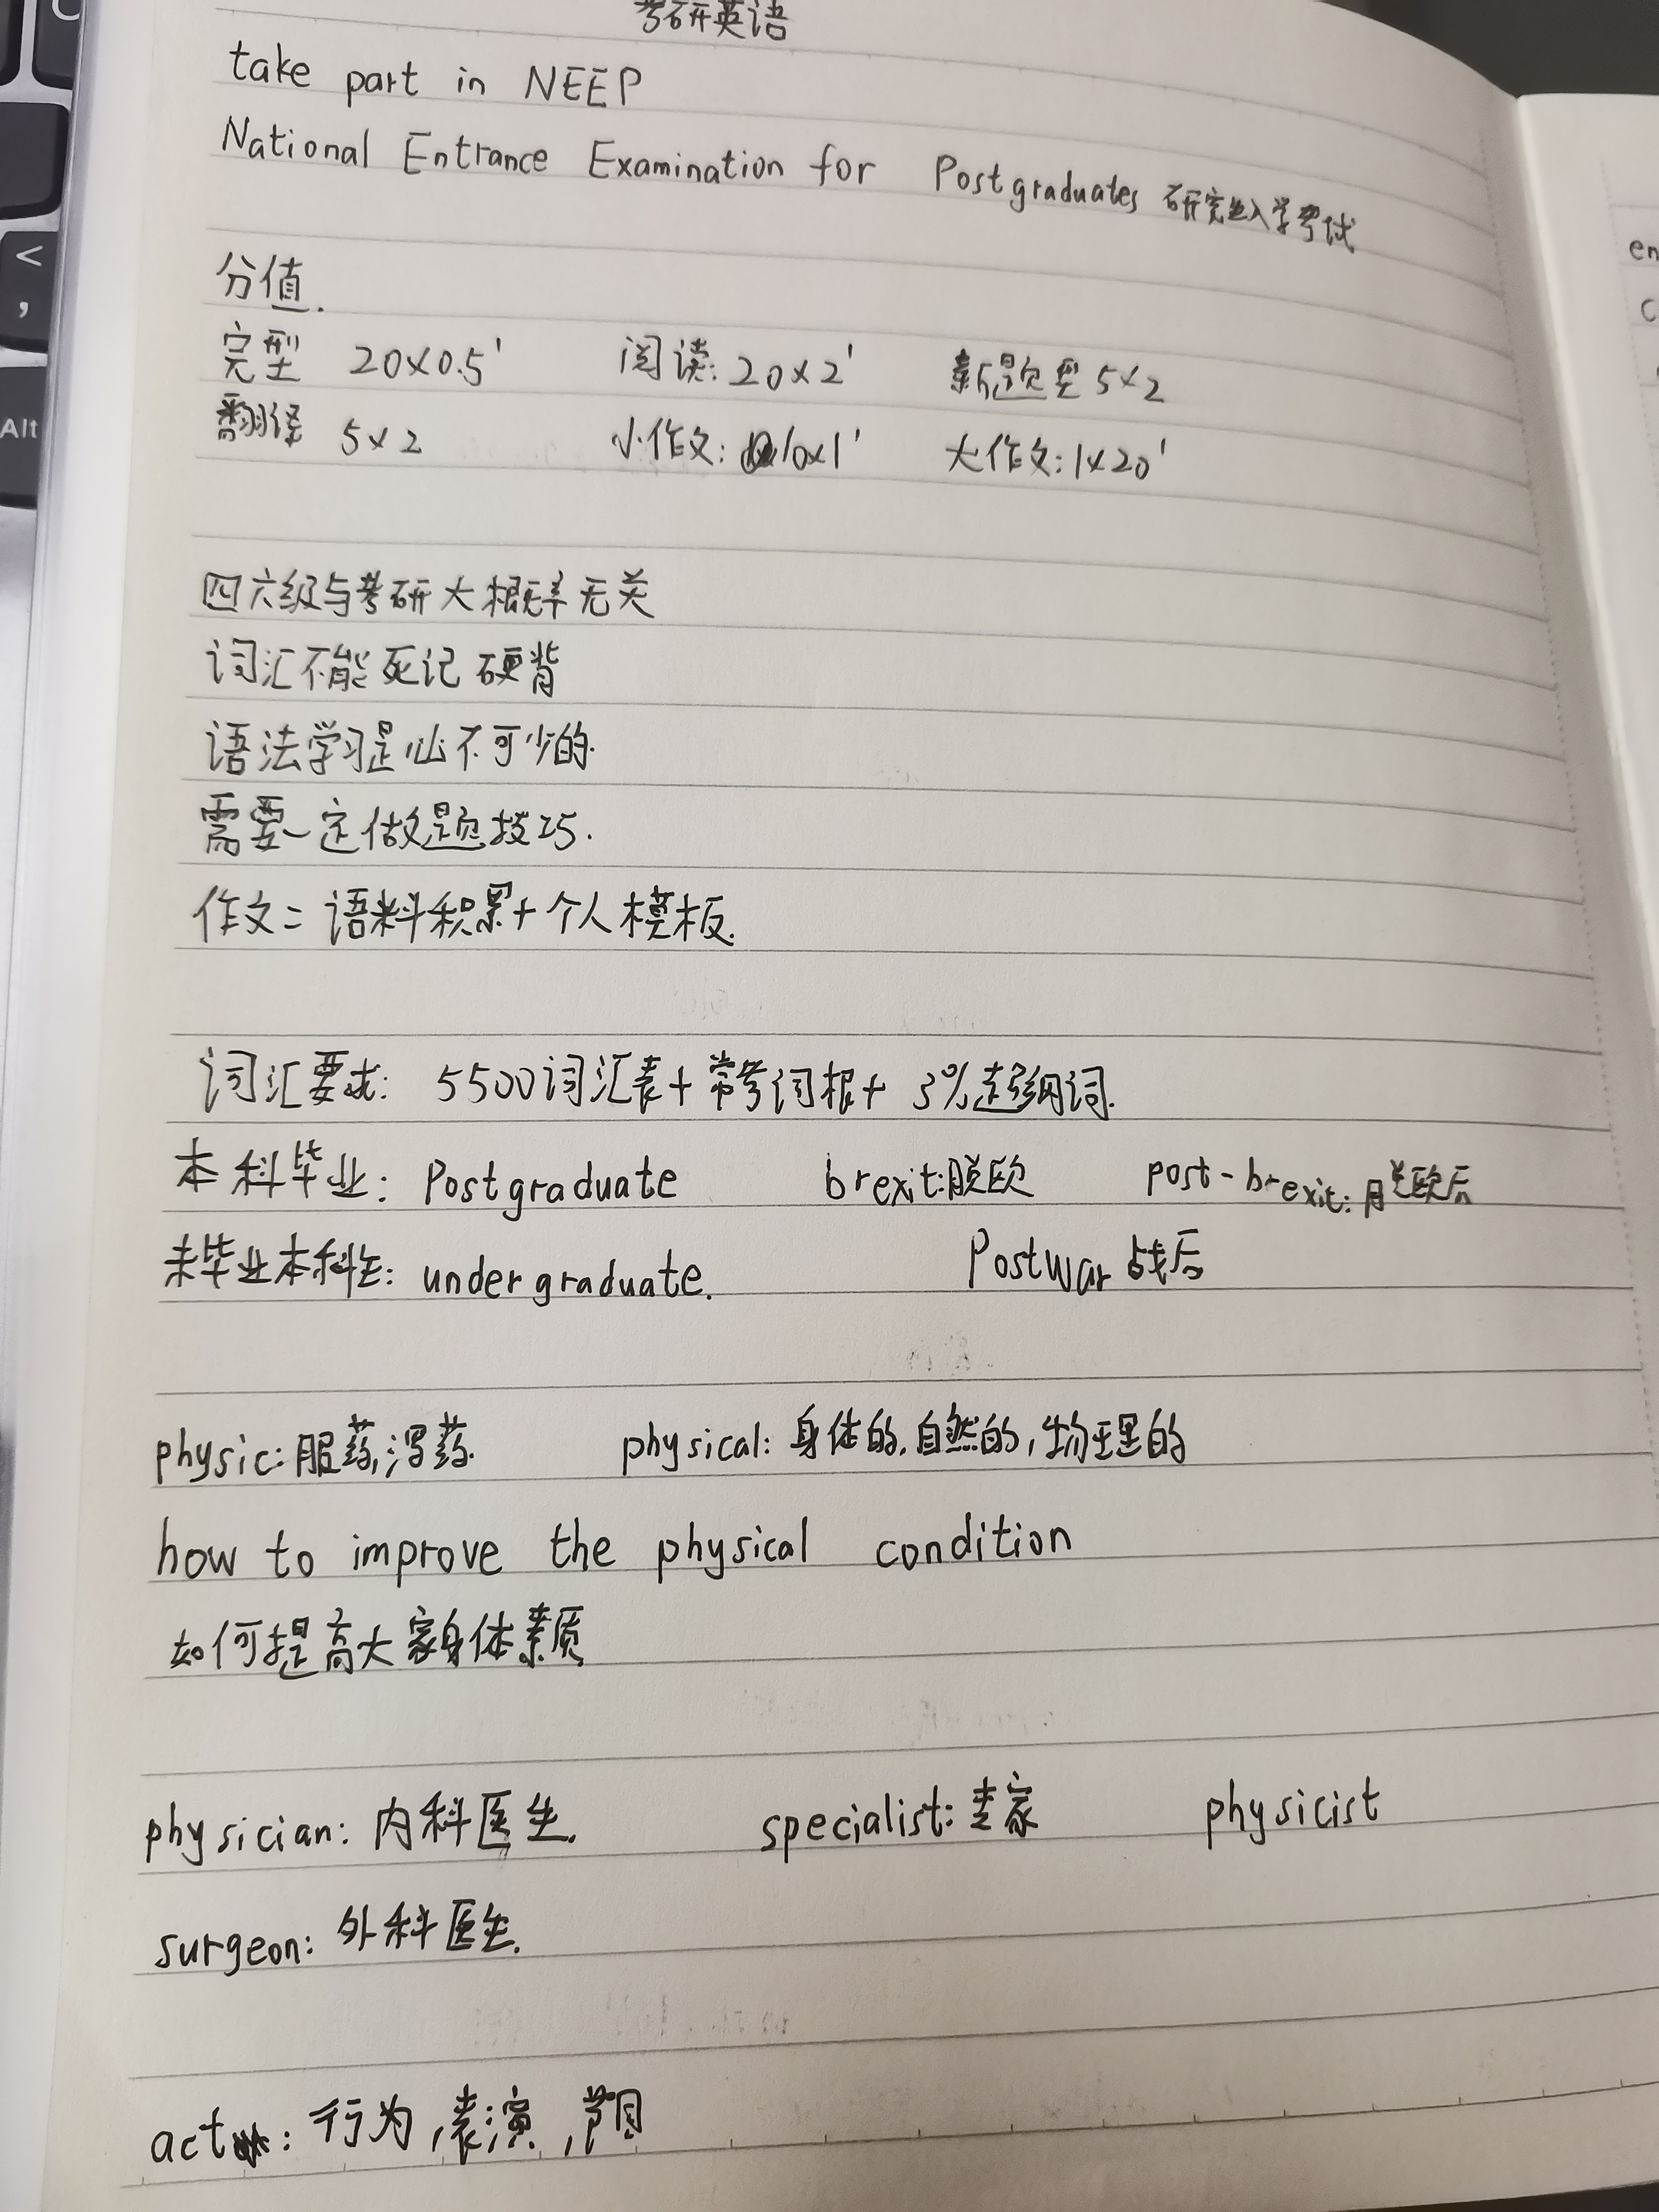 考研英语
take part in NEEP
National Entrance Examination for Postgraduates 研究生入学考试
分值.
完型 20×0.5' 阅读: 20×2' 新题型 5×2
翻译 5×2 小作文: 10×1' 大作文: 1×20'
四六级与考研大概率无关
词汇不能死记硬背
语法学习是必不可少的.
需要一定做题技巧.
作文= 语料积累+个人模板.
词汇要求: 5500词汇表+常考词根+ 3%超纲词.
本科毕业: Postgraduate brexit:脱欧 post-brexit: 脱欧后
未毕业本科生: undergraduate. Postwar 战后
physic: 服药,泻药. physical: 身体的,自然的,物理的
how to improve the physical condition
如何提高大家身体素质
physician: 内科医生. specialist: 专家 physicist
surgeon: 外科医生.
act: 行为,表演,节目
en
C
<
,
Alt